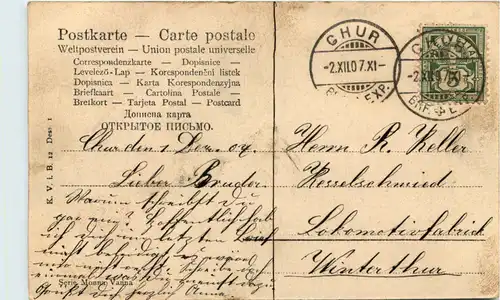 Postkarte — Carte postale
Weltpostverein — Union postale universelle
Correspondenzkarte — Dopisnice
Levelező-Lap — Korespondenční listek
Dopisnica — Karta Korespondenzyjna
Briefkaart — Cartolina Postale
Brefkort — Tarjeta Postal — Postcard
Дописна карта
ОТКРЫТОЕ ПИСЬМО.
K. V. i. B. 12 Dess. 1
Chur den 1 Dez. 07.
Lieber Bruder.
Warum schreibst du
gar nie? Hoffentlich hab
ich dich im letzten Brief
nicht beleidigt
Serie Monna Vanna
CHUR
-2.XII.07.XI-
BRF. EXP.
CHUR
-2.XII.07.XI-
BRF. EXP.
5
Herrn R. Keller
Kesselschmied
Lokomotivfabrik
Winterthur